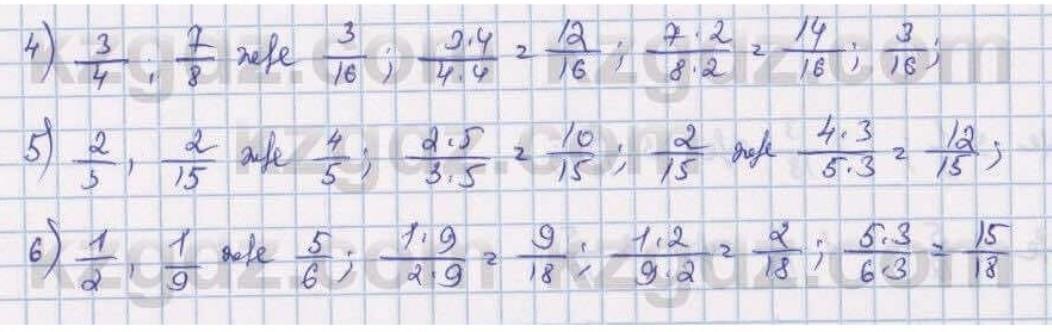 4) 3/4 ; 7/8 және 3/16 ; 3·4/4·4 = 12/16 ; 7·2/8·2 = 14/16 ; 3/16 ;
5) 2/3 , 2/15 және 4/5 ; 2·5/3·5 = 10/15 ; 2/15 және 4·3/5·3 = 12/15 ;
6) 1/2 , 1/9 және 5/6 ; 1·9/2·9 = 9/18 ; 1·2/9·2 = 2/18 ; 5·3/6·3 = 15/18